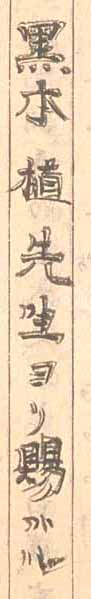 黒木植先生ヨリ賜ハル